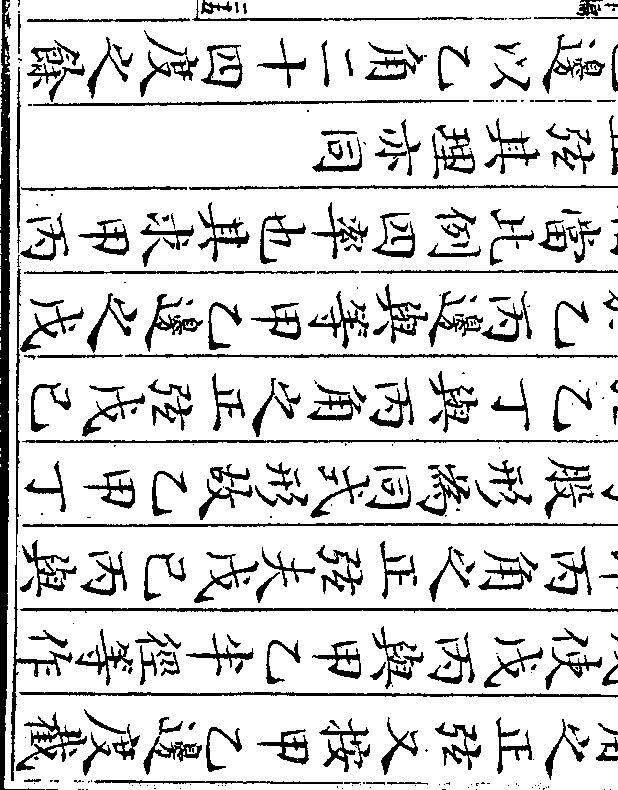 之正弦又按甲乙邊度截
使戊丙與甲乙半徑等作
丙角之正弦夫戊己丙與
股形為同式形故乙甲丁
乙丁與丙角之正弦戊己
乙丙邊與等甲乙邊之戊
當此例四率也其求甲丙
弦其理亦同
邊以乙角二十四度之餘